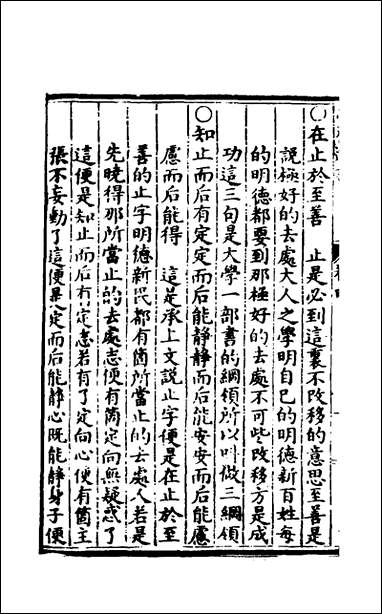 ○在止於至善　止是必到這裏不改移的意思至善是
說極好的去處大人之學明自己的明德新百姓每
的明德都要到那極好的去處不可些改移方是成
功這三句是大學一部書的綱領所以叫做三綱領
○知止而后有定定而后能靜靜而后能安安而后能慮
慮而后能得　這是承上文說止字便是在止於至
善的止字明德新民都有箇所當止的去處人若是
先曉得那所當止的去處志便有箇定向無疑惑了
這便是知止而后有定志若有了定向心便有箇主
張不妄動了這便是定而后能靜心既能靜身子便